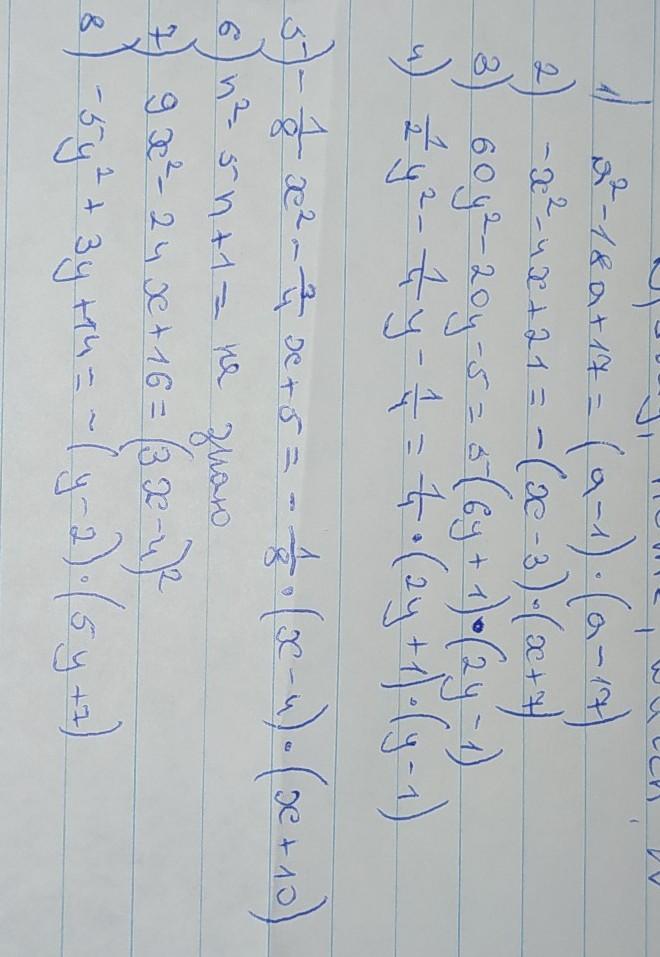 1) a²-18a+17=(a-1)·(a-17)
2) -x²-4x+21=-(x-3)·(x+7)
3) 60y²-20y-5=5(6y+1)·(2y-1)
4) 1/2y²-1/4y-1/4=1/4·(2y+1)·(y-1)
5) -1/8x²-3/4x+5=-1/8·(x-4)·(x+10)
6) n²-5n+1= не знаю
7) 9x²-24x+16=(3x-4)²
8) -5y²+3y+14=-(y-2)·(5y+7)